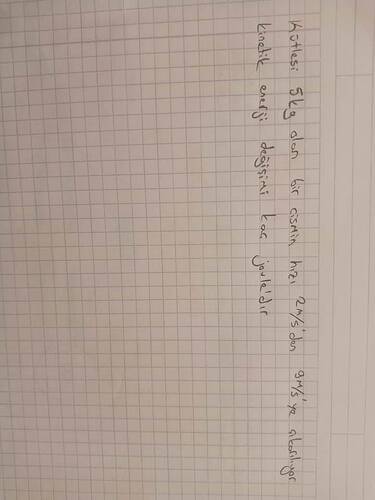 Kütlesi 5kg olan bir cismin hızı 2m/s'den 9m/s'ye çıkarılıyor
kinetik enerji değişimi kaç joule'dır